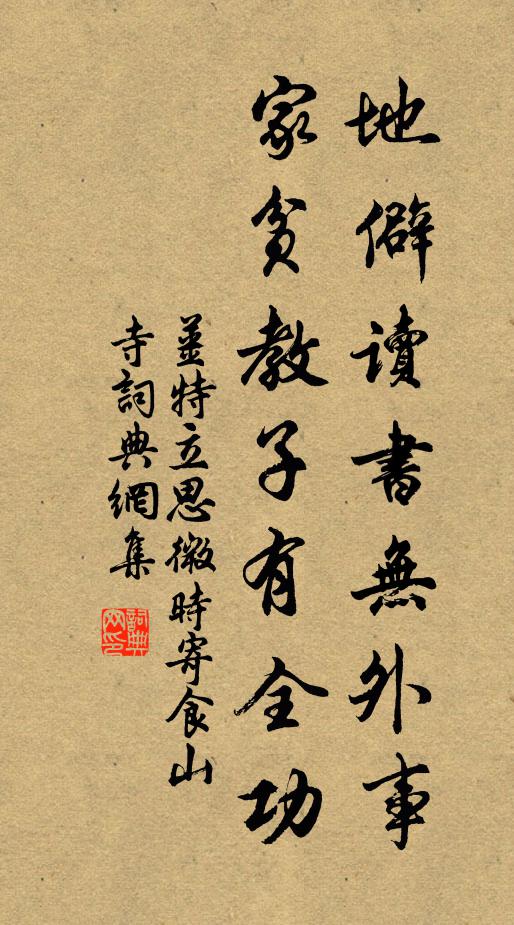 地僻讀書無外事
家貧教子有全功
姜特立思微時寄食山
寺詞典網集
詞典网印